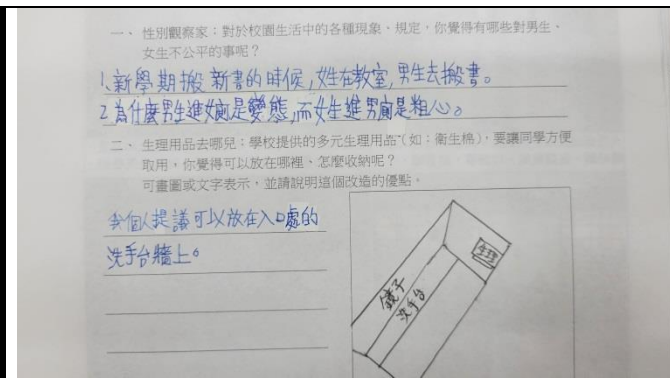 一、 性別觀察家：對於校園生活中的各種現象、規定，你覺得有哪些對男生、
女生不公平的事呢？
1、新學期搬新書的時候，女生在教室，男生去搬書。
2 為什麼男生進女廁是變態，而女生進男廁是粗心。
二、 生理用品去哪兒：學校提供的多元生理用品（如：衛生棉），要讓同學方便
取用，你覺得可以放在哪裡、怎麼收納呢？
可畫圖或文字表示，並請說明這個改造的優點。
我個人提議可以放在入口處的
洗手台牆上。
鏡子
洗手台